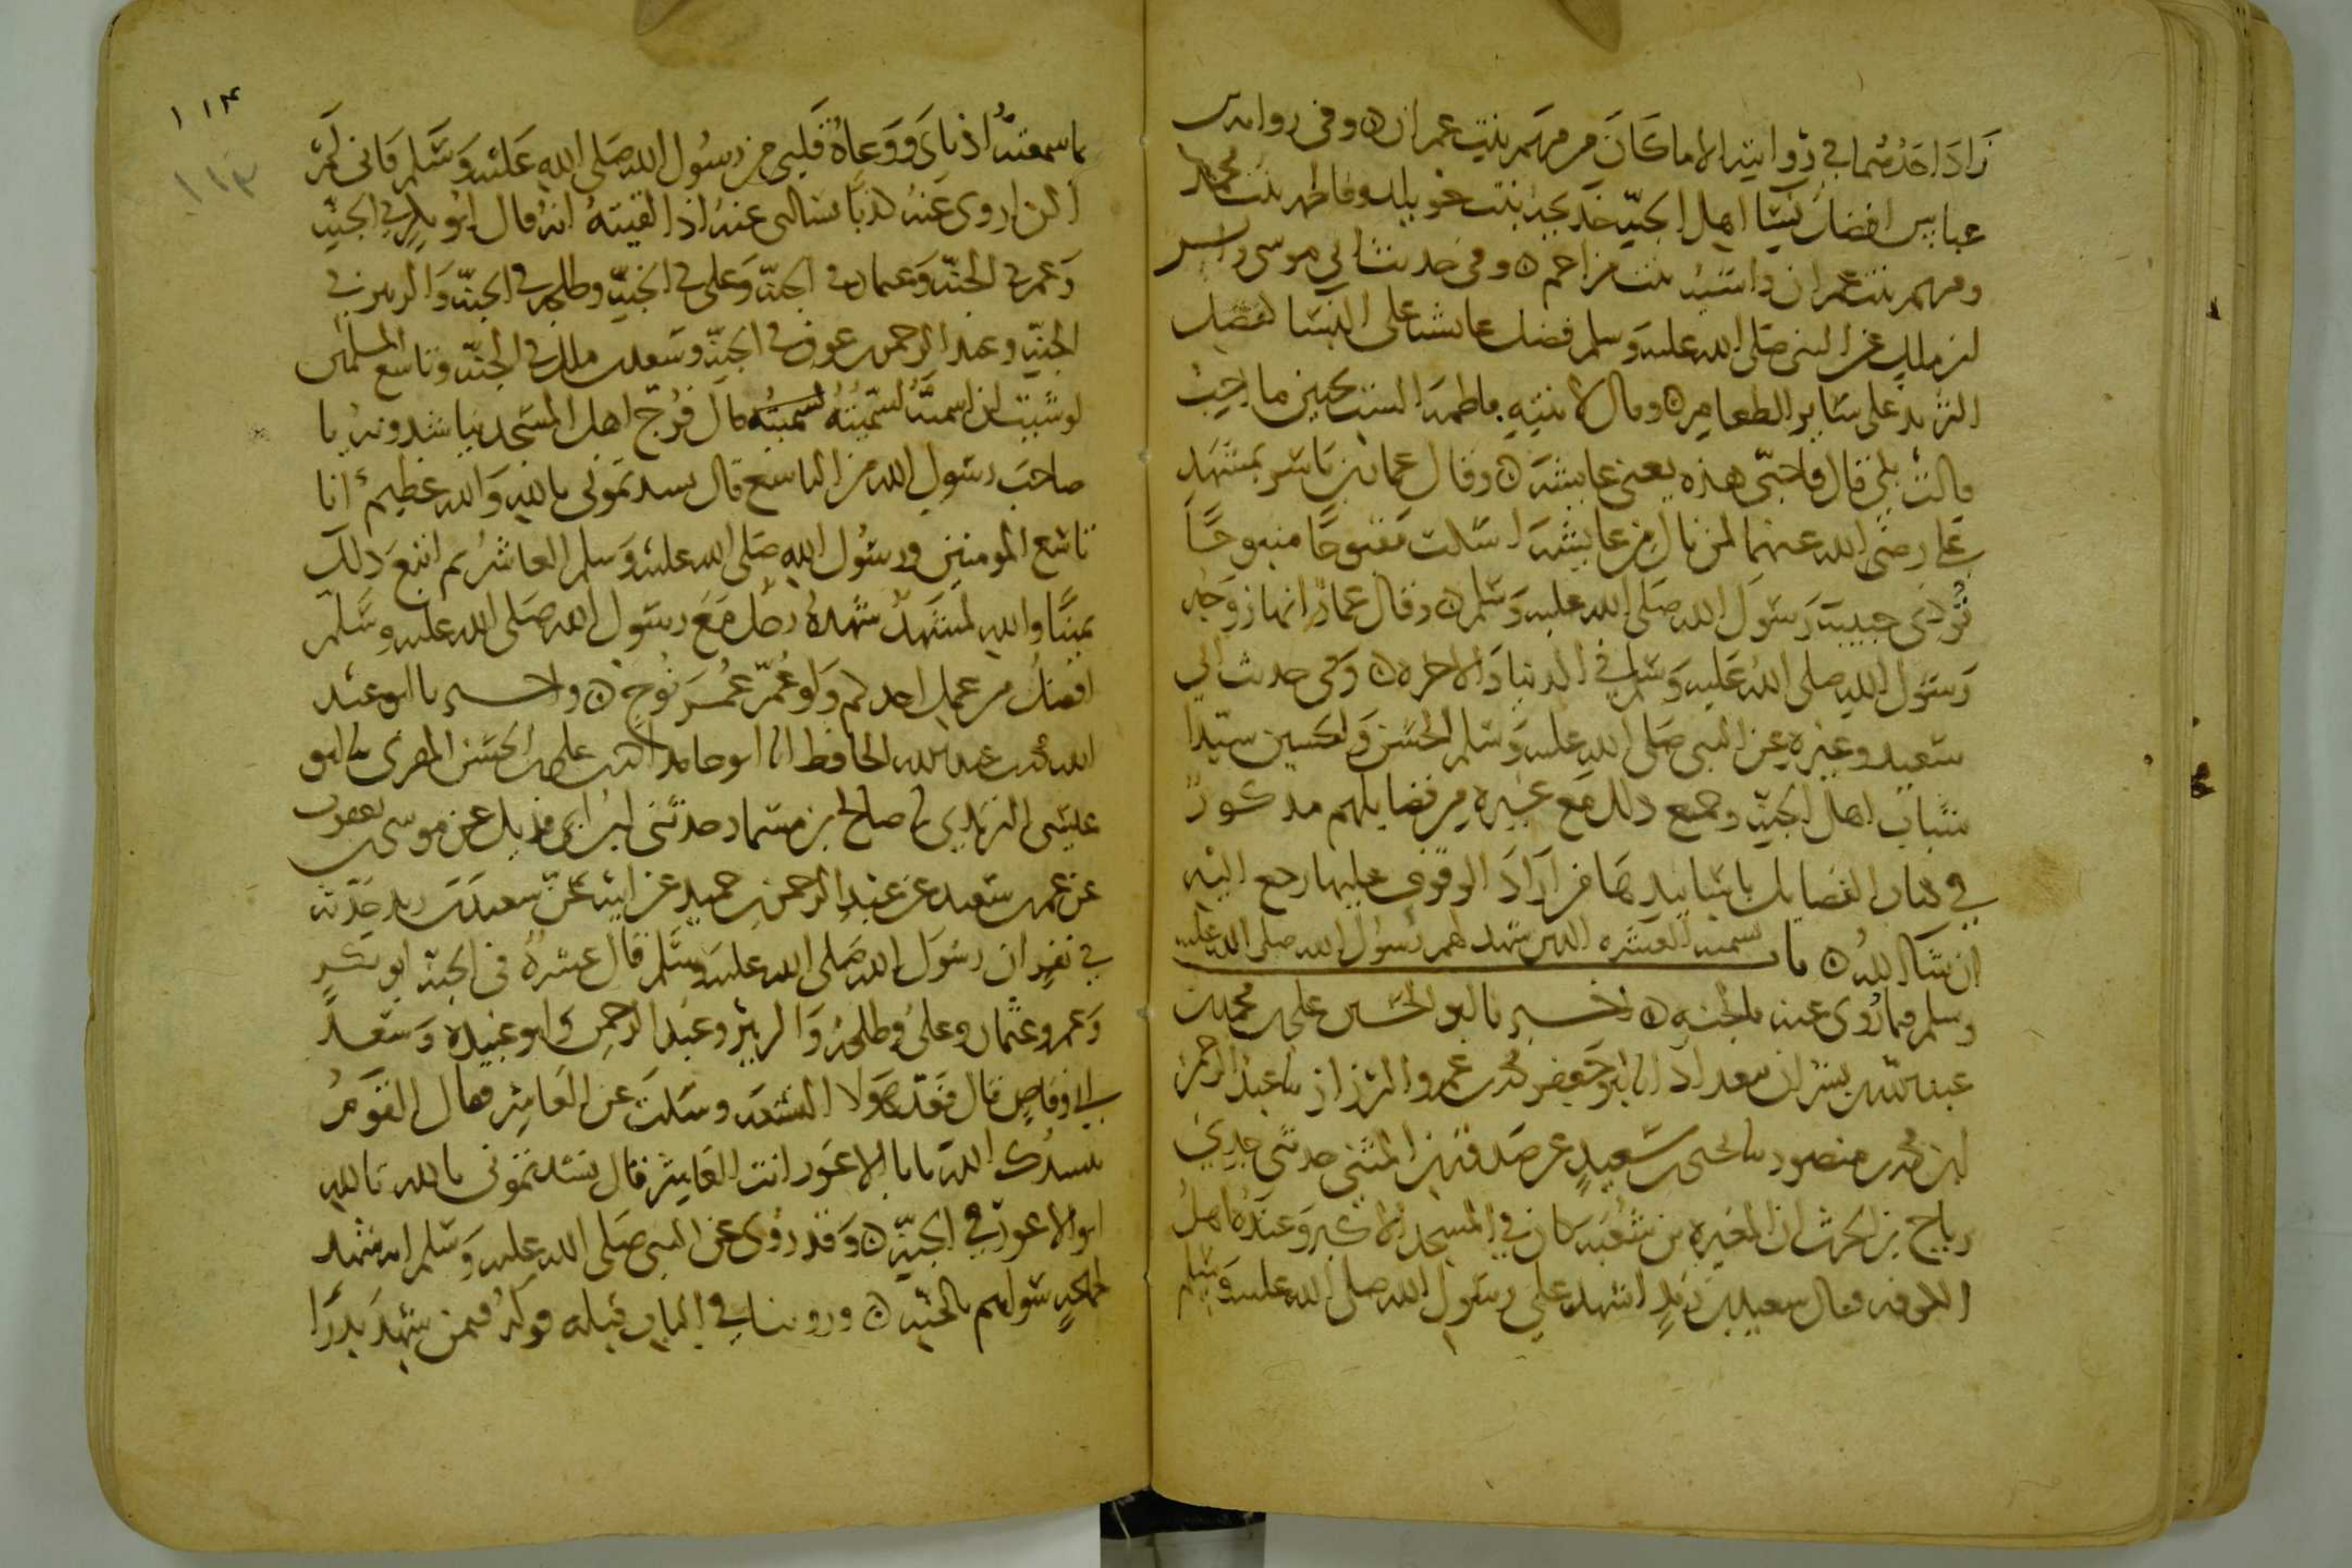 زاد احدهما في روايته الا ما كان من مريم بنت عمران ٥ وفي رواية بن
عباس افضل نسا اهل الجنة خديجة بنت خويلد وفاطمة بنت محمد
ومريم بنت عمران واسية بنت مزاحم ٥ وفي حديث ابي موسى وانس
بن ملك عن النبي صلى الله عليه وسلم فضل عايشة على النسا كفضل
الثريد على ساير الطعام ٥ وقال لابنته فاطمة الست تحبين ما احب
قالت بلى قال فاحبي هذه يعني عايشة ٥ وقال عمار بن ياسر بمشهد
علي رضي الله عنهما لمن نال من عايشة اسكت مقبوحا منبوحا
تؤذي حبيبة رسول الله صلى الله عليه وسلم ٥ وقال عمار انها زوجة
رسول الله صلى الله عليه وسلم في الدنيا والاخرة ٥ وفي حديث ابي
سعيد وغيره عن النبي صلى الله عليه وسلم الحسن والحسين سيدا
شباب اهل الجنة وجميع ذلك مع غيره من فضايلهم مذكور
في كتاب الفضايل باسانيدها من اراد الوقوف عليها رجع اليه
ان شا الله ٥ باب تسمية العشرة الذين شهد لهم رسول الله صلى الله عليه
وسلم فيما روي عنه بالجنة ٥ اخبرنا ابو الحسين علي بن محمد بن
عبد الله بن بشران ببغداد انا ابو جعفر محمد بن عمرو الرزاز نا عبد الرحمن
بن محمد بن منصور نا يحيى بن سعيد عن صدقة بن المثنى حدثني جدي
رياح بن الحرث ان المغيرة بن شعبة كان في المسجد الاكبر وعنده اهل
الكوفة فقال سعيد بن زيد اشهد على رسول الله صلى الله عليه وسلم
١١٤
١١٣
بما سمعته اذناي ووعاه قلبي من رسول الله صلى الله عليه وسلم فاني لم
اكن اروي عنه كذبا يسالني عنه اذا لقيته انه قال ابو بكر في الجنة
وعمر في الجنة وعثمان في الجنة وعلي في الجنة وطلحة في الجنة والزبير في
الجنة وعبد الرحمن بن عوف في الجنة وسعد بن ملك في الجنة وتاسع المسلمين
لو شيت ان اسميه لسميته قال فرج اهل المسجد يناشدونه يا
صاحب رسول الله من التاسع قال نشدتموني بالله والله عظيم انا
تاسع المومنين ورسول الله صلى الله عليه وسلم العاشر ثم اتبع ذلك
يمينا والله لمشهد شهده رجل مع رسول الله صلى الله عليه وسلم
افضل من عمل احدكم ولو عمر عمر نوح ٥ واخبرنا ابو عبد
الله محمد بن عبد الله الحافظ انا ابو حامد احمد بن علي بن الحسن المقري نا ابو
عيسى الترمذي نا صالح بن مسمار حدثني ابن ابي فديك عن موسى بن يعقوب
عن عمر بن سعيد عن عبد الرحمن بن حميد عن ابيه عن سعيد بن زيد حدثه
في نفر ان رسول الله صلى الله عليه وسلم قال عشرة في الجنة ابو بكر
وعمر وعثمان وعلي وطلحة والزبير وعبد الرحمن وابو عبيدة وسعد بن
ابي وقاص قال فعد هولا التسعة وسكت عن العاشر فقال القوم
ننشدك الله يا ابا الاعور انت العاشر قال نشدتموني بالله تالله
ابو الاعور في الجنة ٥ وقد روي عن النبي صلى الله عليه وسلم انه شهد
لجماعة سواهم بالجنة ٥ وروينا في الباب قبله قوله فيمن شهد بدرا